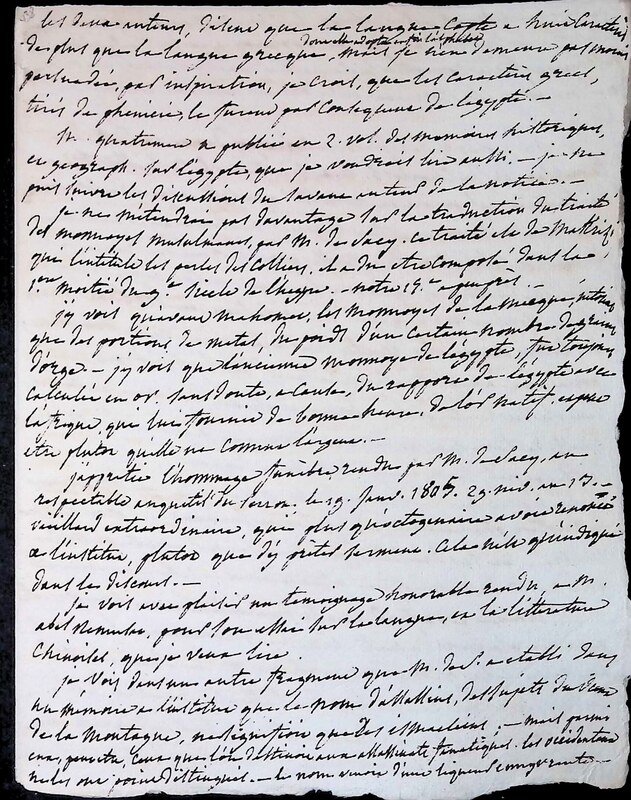 les deux auteurs, disent que la langue Copte a huit caracteres
de plus que la langue grecque, mais je n'en demeure pas moins
persuadée, par inspiration, je crois, que les caracteres grecs,
tirés de phenicie, le furent par consequent de l'égypte. —
M. quatremere a publié en 2. vol. des memoires historiques,
et geograph. sur l'égypte, que je voudrais lire aussi. — je ne
puis suivre les discussions du savant auteur de la notice. —
je ne m'etendrai pas davantage sur la traduction du traité
des monnoyes musulmanes, par M. de Sacy. ce traité est de Makrisi
que l'intitule les perles des colliers. il a du etre composé dans la
1ere moitié du 9e siecle de l'hegyre. — notre 15.e a peu près. —
j'y vois qu'avant mahomet, les monnoyes de la mecque, n'etoient
que des portions de metal, du poids d'un certain nombre de grains
d'orge. — j'y vois que l'ancienne monnoye de l'égypte, fut toujours
calculée en or. sans doute, a cause, du rapport de l'égypte avec
l'afrique, qui lui fournit de bonne heure, de l'or natif
etre plutot qu'elle ne connut l'argent. —
j'apprécie l'hommage funèbre, rendu par M. de Sacy, au
respectable anquetil du perron, le 19. Janv. 1805. 29. niv. an 13. —
vieillard extraordinaire, qui plus qu'octogenaire avoit renoncé
a l'institut, plutot que d'y prêter serment. Cela n'est qu'indiqué
dans le discours. —
je vois avec plaisir un temoignage honorable rendu a M.
abel Remusat, pour son essai sur la langue, et la littérature
Chinoises, que je veux lire.
je vois dans un autre fragment que M. de S. a etabli dans
un mémoire a l'institut que le nom d'assassins, des sujets du
de la Montagne, ne signifioit que des ismaeliens; — mais parmi
eux, ceux que l'on destinoit aux assassinats fanatiques. les occidentaux
ne les ont point distingués. — le nom venoit d'une liqueur enivrante —